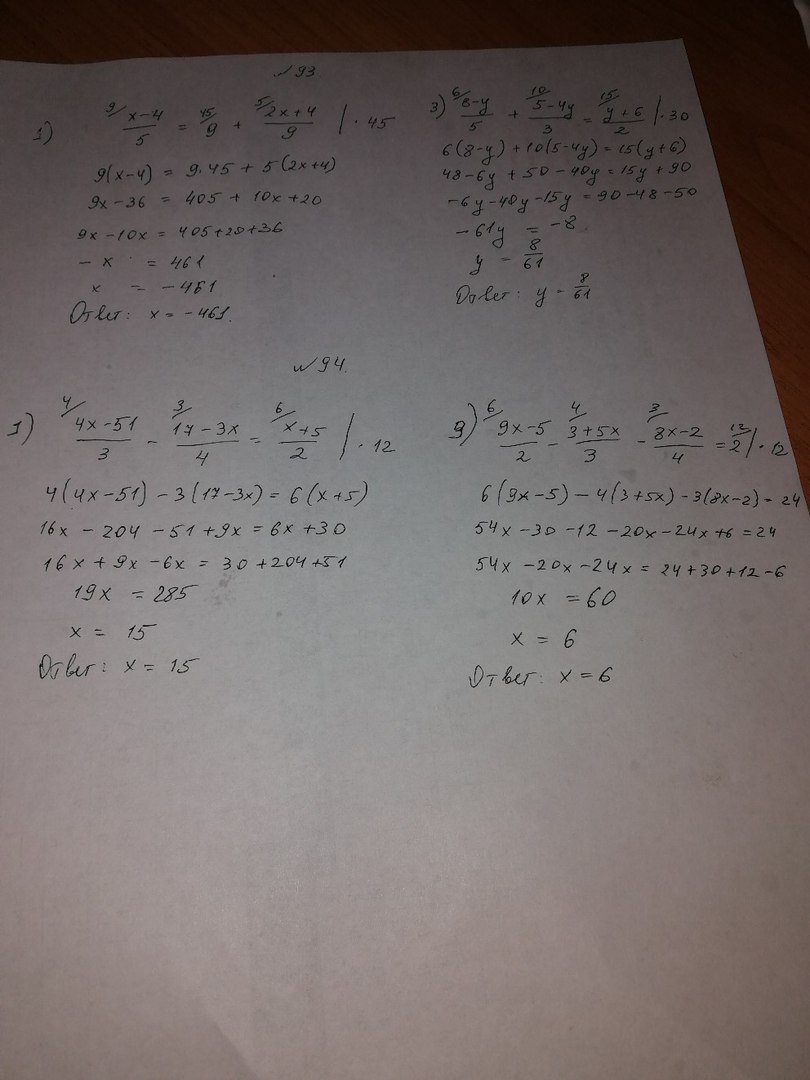 № 93
1) ⁹⁄ (x-4)/5 = ⁴⁵⁄ 9 + ⁵⁄ (2x+4)/9 | · 45
9(x-4) = 9·45 + 5(2x+4)
9x-36 = 405 + 10x+20
9x-10x = 405+20+36
-x = 461
x = -461
Ответ: x = -461.
3) ⁶⁄ (8-y)/5 + ¹⁰⁄ (5-4y)/3 = ¹⁵⁄ (y+6)/2 | · 30
6(8-y) + 10(5-4y) = 15(y+6)
48-6y + 50 - 40y = 15y + 90
-6y-40y-15y = 90-48-50
-61y = -8
y = 8/61
Ответ: y = 8/61
№ 94.
1) ⁴⁄ (4x-51)/3 - ³⁄ (17-3x)/4 = ⁶⁄ (x+5)/2 | · 12
4(4x-51) - 3(17-3x) = 6(x+5)
16x - 204 - 51 + 9x = 6x + 30
16x + 9x - 6x = 30 + 204 + 51
19x = 285
x = 15
Ответ: x = 15
9) ⁶⁄ (9x-5)/2 - ⁴⁄ (3+5x)/3 - ³⁄ (8x-2)/4 = ¹²⁄ 2 | · 12
6(9x-5) - 4(3+5x) - 3(8x-2) = 24
54x - 30 - 12 - 20x - 24x + 6 = 24
54x - 20x - 24x = 24 + 30 + 12 - 6
10x = 60
x = 6
Ответ: x = 6